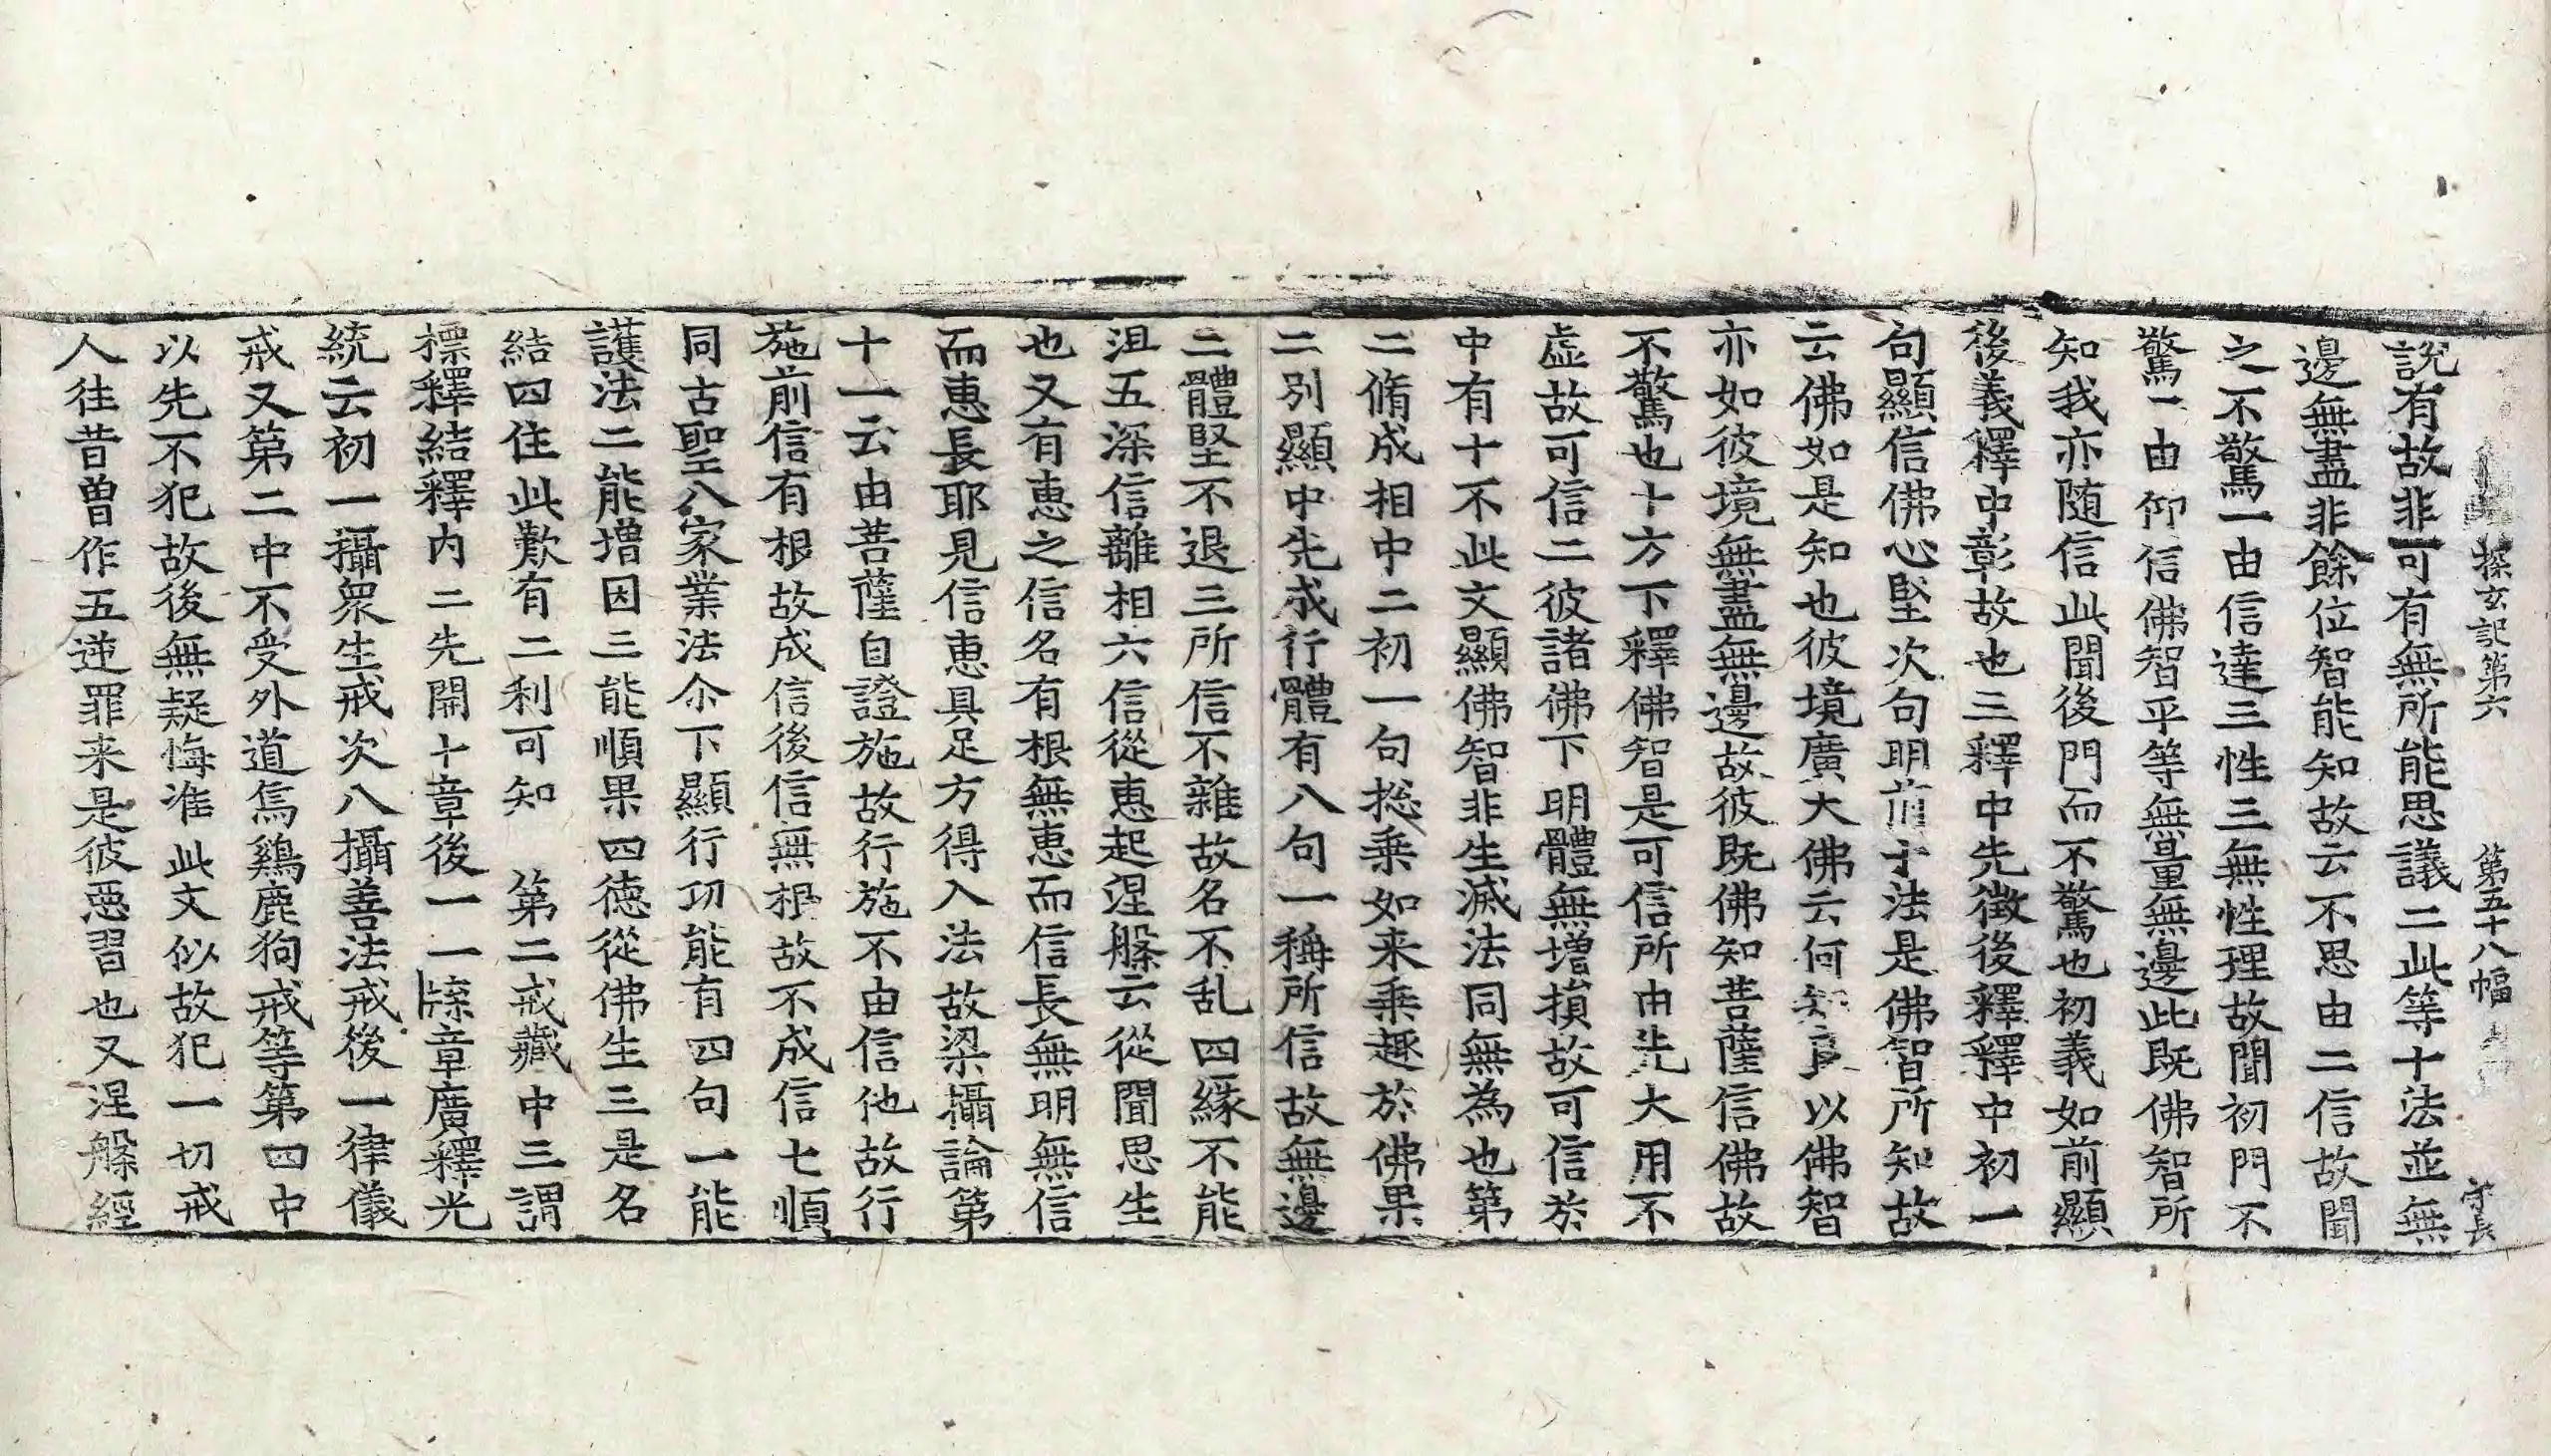 探玄記第六 第五十八幅 守長
說有故非可有無所能思議二此等十法並無
邊無盡非餘位智能知故云不思由二信故聞
之不驚一由信達三性三無性理故聞初門不
驚一由仰信佛智平等無量無邊此既佛智所
知我亦随信此聞後門而不驚也初義如前顯
後義釋中彰故也三釋中先徵後釋釋中初一
句顯信佛心堅次句明前十法是佛智所知故
云佛如是知也彼境廣大佛云何知以佛智
亦如彼境無盡無邊故彼既佛知菩薩信佛故
不驚也十方下釋佛智是可信所由先大用不
虛故可信二彼諸佛下明體無增損故可信於
中有十不此文顯佛智非生滅法同無為也第
二脩成相中二初一句捴乗如来乗趣於佛果
二別顯中先成行體有八句一稱所信故無邊
二體堅不退三所信不雜故名不乱四緣不能
沮五深信離相六信從恵起涅槃云從聞思生
也又有恵之信名有根無恵而信長無明無信
而恵長耶見信恵具足方得入法故梁攝論第
十一云由菩薩自證施故行施不由信他故行
施前信有根故成信後信無根故不成信七順
同古聖八家業法尒下顯行功能有四句一能
護法二能增因三能順果四德從佛生三是名
結四住此歎有二利可知 第二戒藏中三謂
標釋結釋内二先開十章後一一牒章廣釋光
統云初一攝衆生戒次八攝善法戒後一律儀
戒又第二中不受外道烏鷄鹿狗戒等第四中
以先不犯故後無疑悔准此文似故犯一切戒
人往昔曽作五逆罪来是彼惡習也又涅槃經